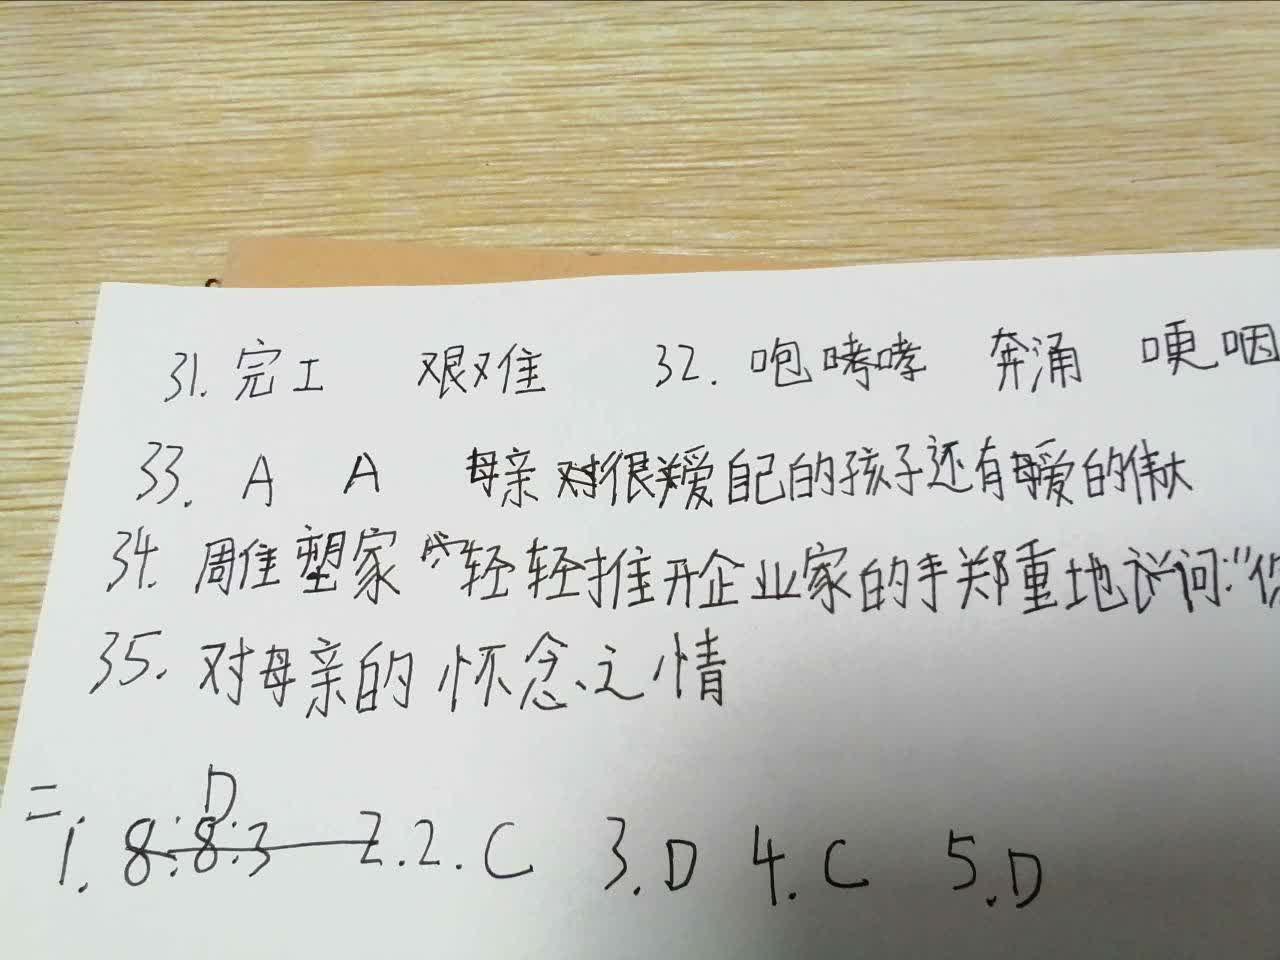 31. 完工 艰难 32. 咆哮哮 奔涌 哽咽
33. A A 母亲对很关爱自己的孩子还有母爱的伟大
34. 周隹塑家"轻轻推开企业家的手郑重地说问:"你
35. 对母亲的怀念之情
二
D
1. 8:8:3 2.2. C 3. D 4. C 5. D